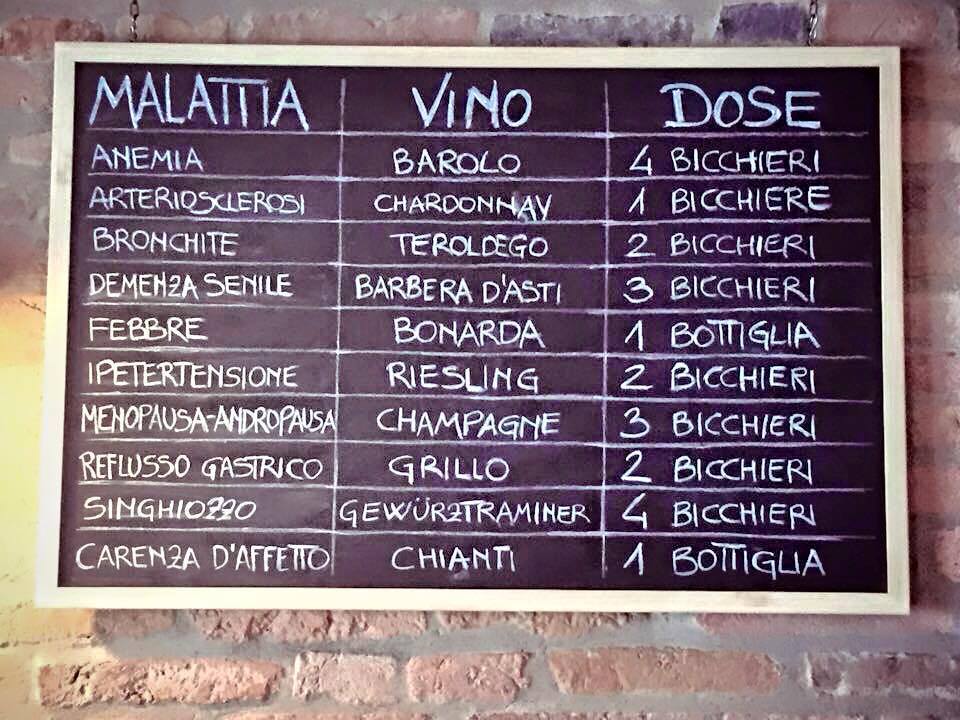 MALATTIA VINO DOSE
ANEMIA BAROLO 4 BICCHIERI
ARTERIOSCLEROSI CHARDONNAY 1 BICCHIERE
BRONCHITE TEROLDEGO 2 BICCHIERI
DEMENZA SENILE BARBERA D'ASTI 3 BICCHIERI
FEBBRE BONARDA 1 BOTTIGLIA
IPETERTENSIONE RIESLING 2 BICCHIERI
MENOPAUSA-ANDROPAUSA CHAMPAGNE 3 BICCHIERI
REFLUSSO GASTRICO GRILLO 2 BICCHIERI
SINGHIOZZO GEWÜRZTRAMINER 4 BICCHIERI
CARENZA D'AFFETTO CHIANTI 1 BOTTIGLIA